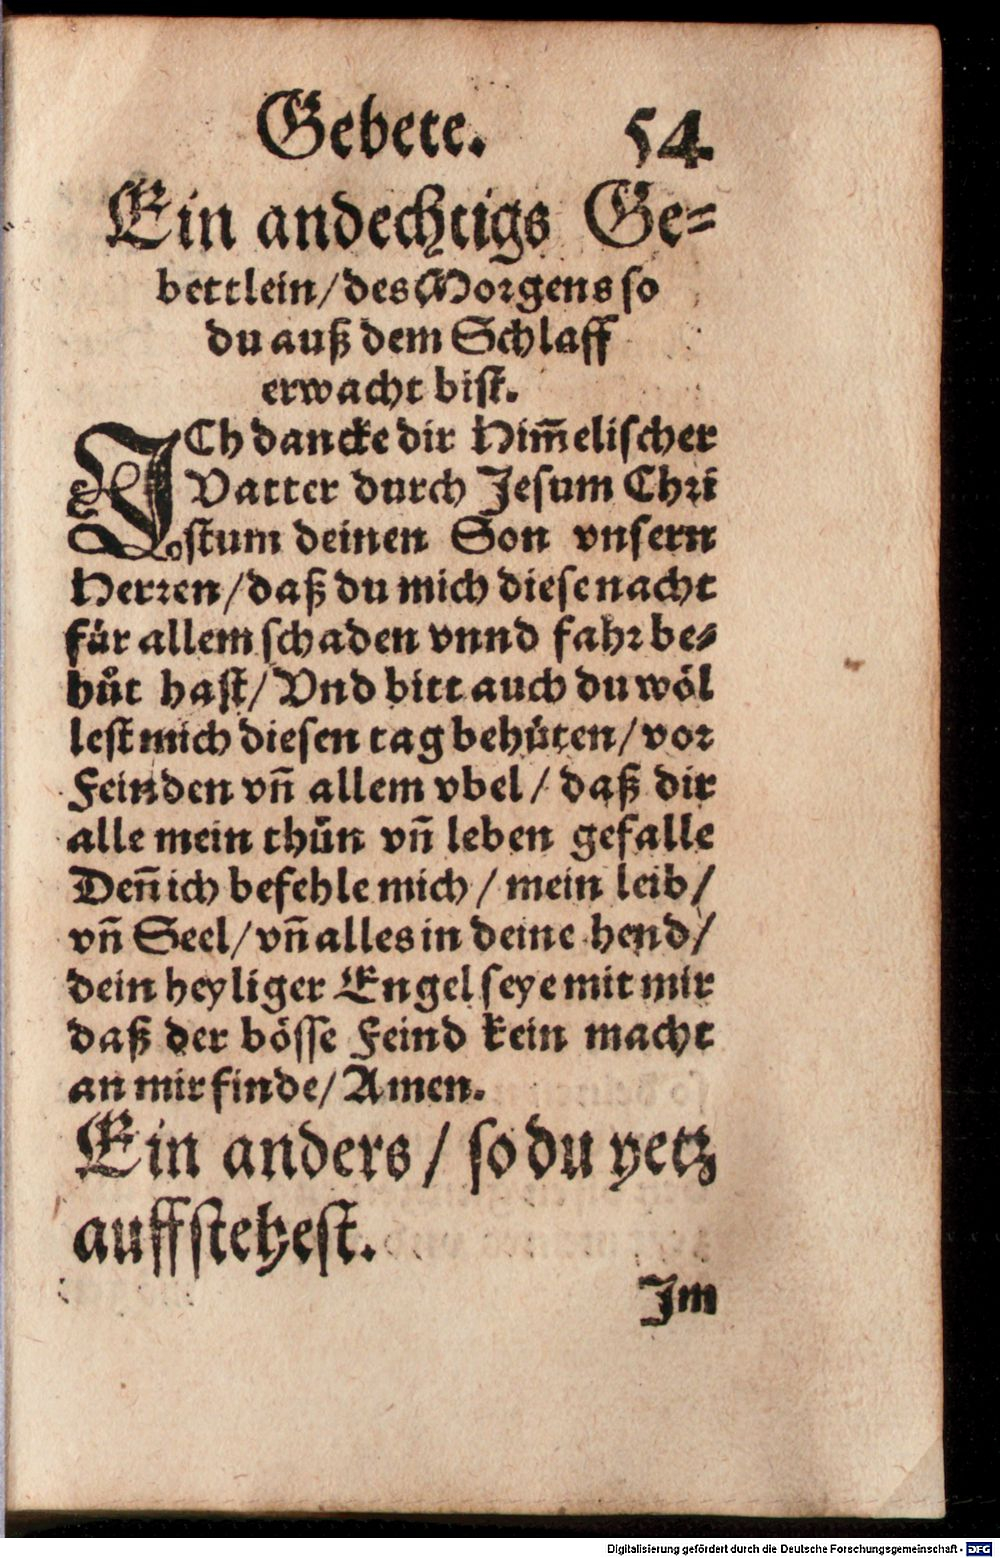 Gebete. 54.
Ein andechtigs Ge-
bettlein/ des Morgens so
du auß dem Schlaff
erwacht bist.
ICh dancke dir Him̄elischer
Vatter durch Jesum Chri
stum deinen Son vnsern
Herren/ daß du mich diese nacht
für allem schaden vnnd fahr be-
hůt hast/ Vnd bitt auch du wöl
lest mich diesen tag behüten/ vor
Feinden vn̄ allem vbel/ daß dir
alle mein thůn vn̄ leben gefalle
Den̄ ich befehle mich/ mein leib/
vn̄ Seel/ vn̄ alles in deine hend/
dein heyliger Engel seye mit mir
daß der bösse Feind kein macht
an mir finde/ Amen.
Ein anders/ so du yetz
auffstehest.
Im
Digitalisierung gefördert durch die Deutsche Forschungsgemeinschaft - DFG